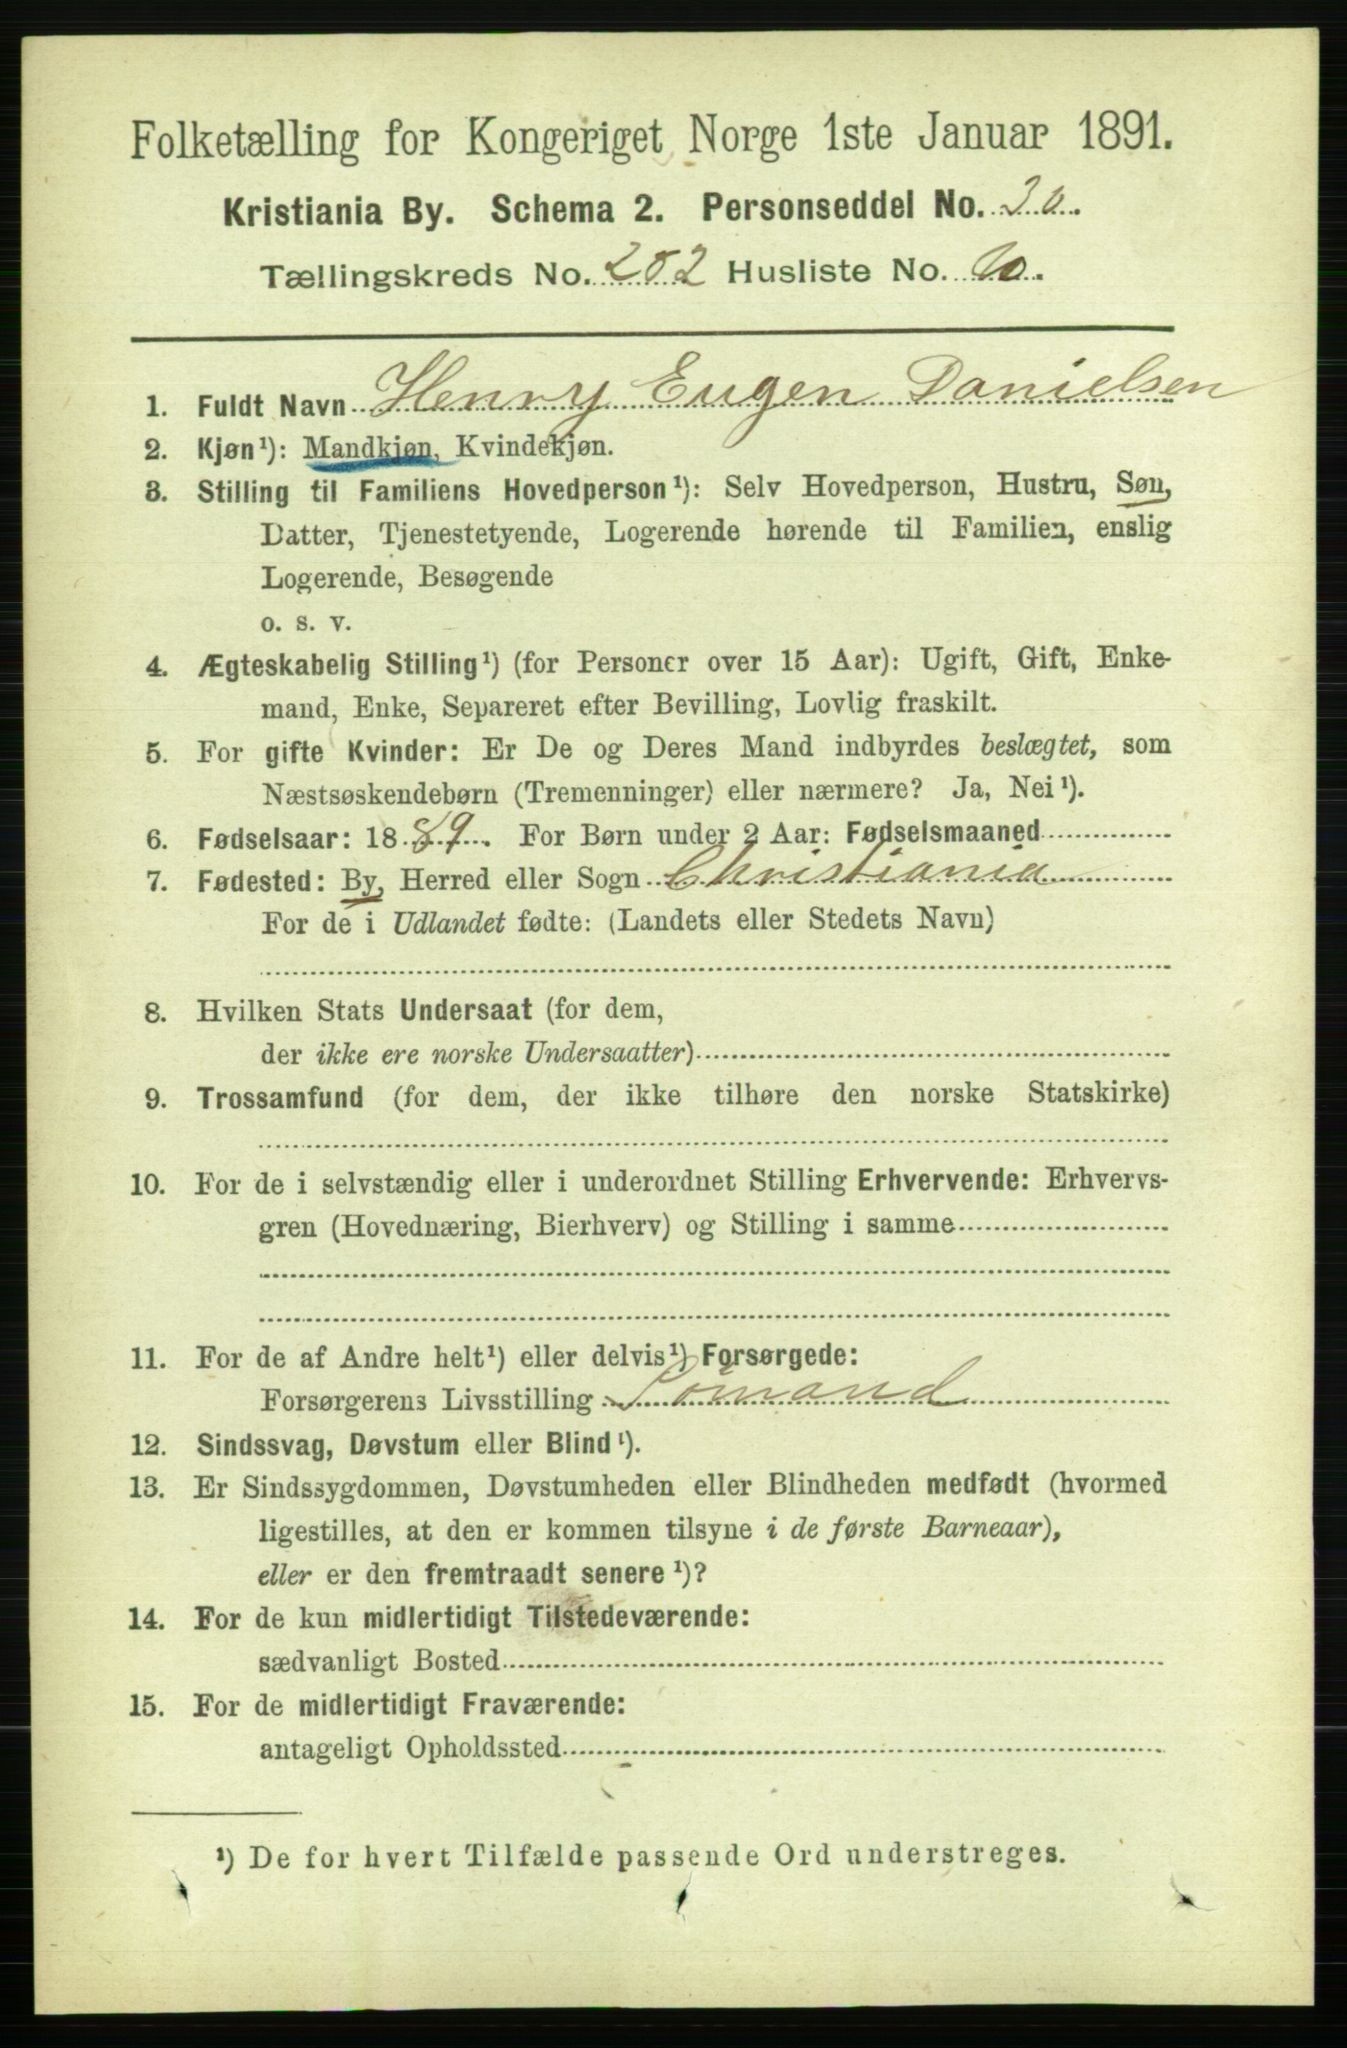 Folketælling for Kongeriget Norge 1ste Januar 1891.
Kristiania By. Schema 2. Personseddel No. 30.
Tællingskreds No. 252 Husliste No.
1. Fuldt Navn Henry Eugen Danielsen
2. Kjøn¹): Mandkjøn, Kvindekjøn.
3. Stilling til Familiens Hovedperson¹): Selv Hovedperson, Hustru, Søn,
Datter, Tjenestetyende, Logerende hørende til Familien, enslig
Logerende, Besøgende
o. s. v.
4. Ægteskabelig Stilling¹) (for Personer over 15 Aar): Ugift, Gift, Enke-
mand, Enke, Separeret efter Bevilling, Lovlig fraskilt.
5. For gifte Kvinder: Er De og Deres Mand indbyrdes beslægtet, som
Næstsøskendebørn (Tremenninger) eller nærmere? Ja, Nei¹).
6. Fødselsaar: 1889. For Børn under 2 Aar: Fødselsmaaned
7. Fødested: By, Herred eller Sogn Christiania
For de i Udlandet fødte: (Landets eller Stedets Navn)
8. Hvilken Stats Undersaat (for dem,
der ikke ere norske Undersaatter)
9. Trossamfund (for dem, der ikke tilhøre den norske Statskirke)
10. For de i selvstændig eller i underordnet Stilling Erhvervende: Erhvervs-
gren (Hovednæring, Bierhverv) og Stilling i samme
11. For de af Andre helt¹) eller delvis¹) Forsørgede:
Forsørgerens Livsstilling Sömand
12. Sindssvag, Døvstum eller Blind¹).
13. Er Sindssygdommen, Døvstumheden eller Blindheden medfødt (hvormed
ligestilles, at den er kommen tilsyne i de første Barneaar),
eller er den fremtraadt senere¹)?
14. For de kun midlertidigt Tilstedeværende:
sædvanligt Bosted
15. For de midlertidigt Fraværende:
antageligt Opholdssted
¹) De for hvert Tilfælde passende Ord understreges.